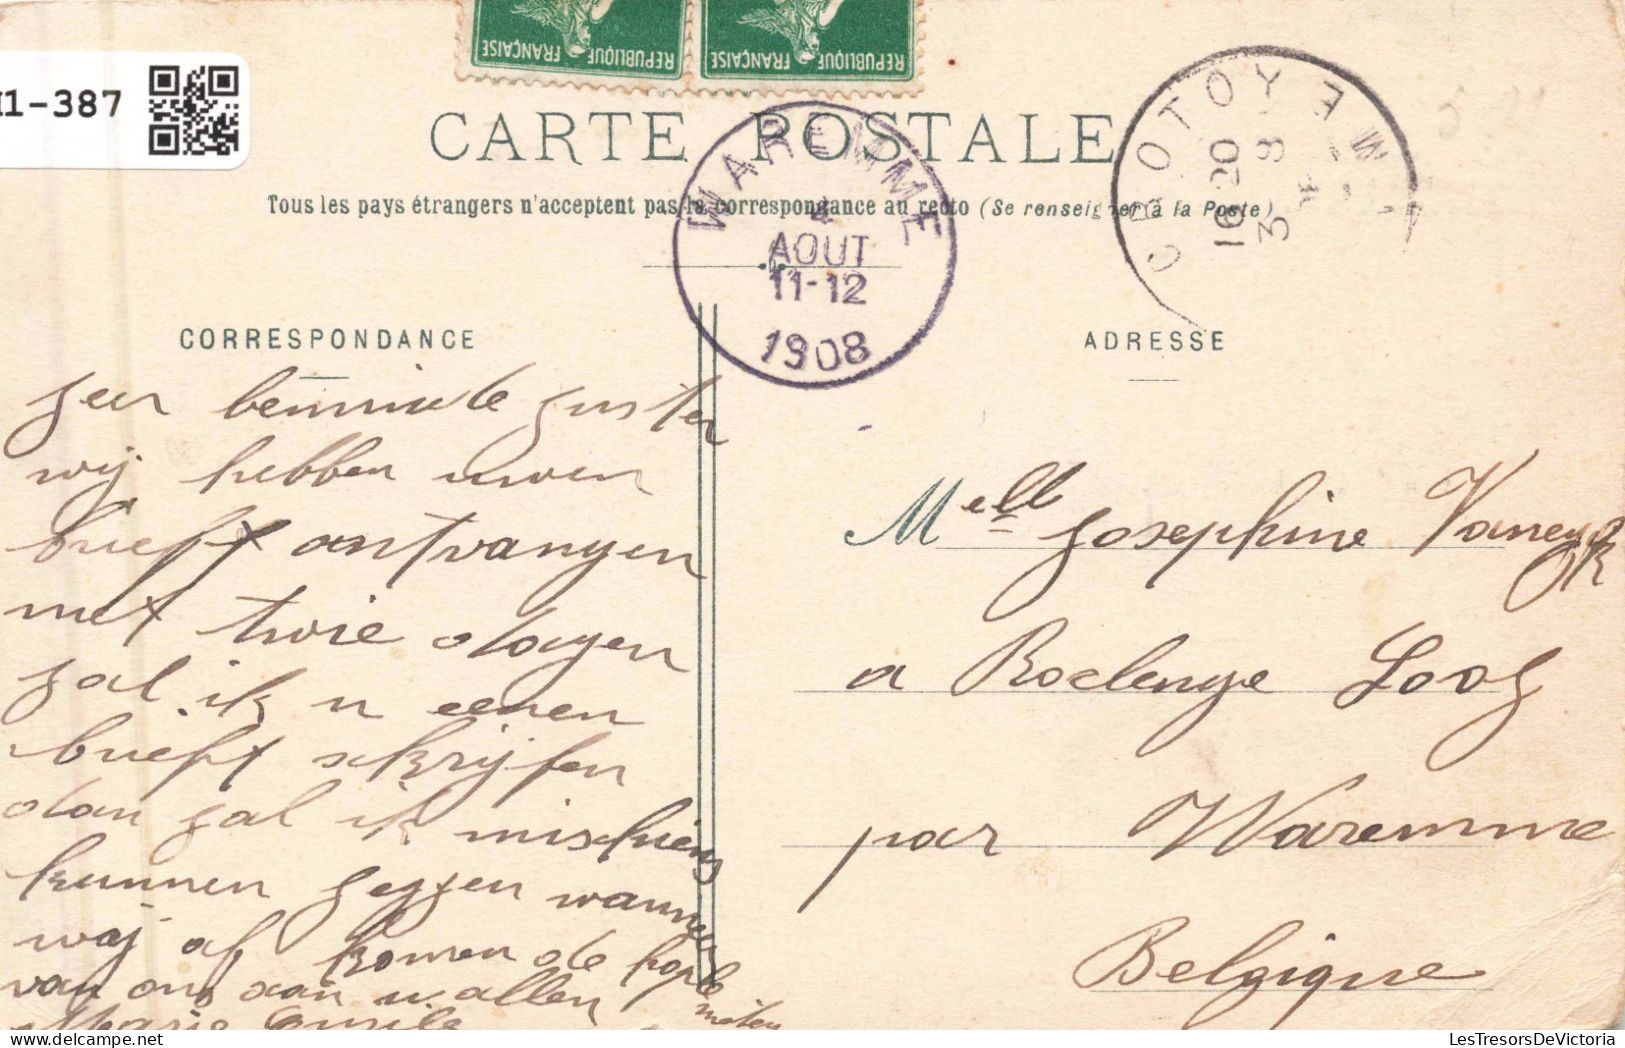 REPUBLIQUE FRANÇAISE REPUBLIQUE FRANÇAISE
1-387
CARTE POSTALE
Tous les pays étrangers n'acceptent pas la correspondance au recto (Se renseigner à la Poste)
WAREMME
4
AOUT
11-12
1908
CROTOY
16 20
3 8
CORRESPONDANCE
ADRESSE
zeer beminde zuster
wij hebben uwen
brieft ontvangen
met twie dagen
zal ik u eenen
brieft skrijfen
dan zal ik mischiens
kunnen zeggen wanneer
waj af komen de
van ons aan u allen
Marie Emile
Melle Josephine Vaneyck
a Roclenge Looz
par Waremme
Belgique
LesTresorsDeVictoria